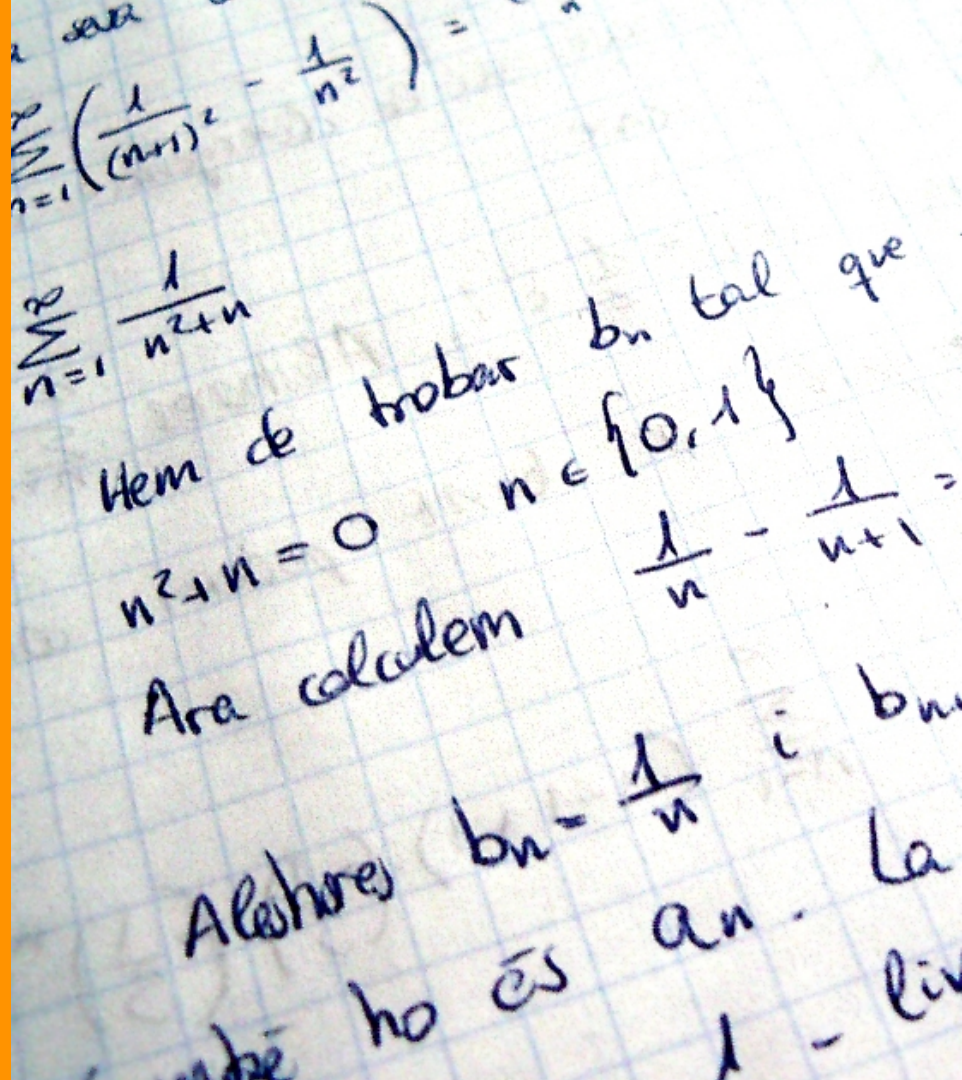 ∑_{n=1}^{∞} ( 1/(n+1)² - 1/n² ) =
∑_{n=1}^{∞} 1/(n²+n)
Hem de trobar bn tal que
n²+n = 0 n ∈ {0,1}
Ara calculem 1/n - 1/(n+1) =
Aleshores bn = 1/n i bn
ho és an. La
1 - lim